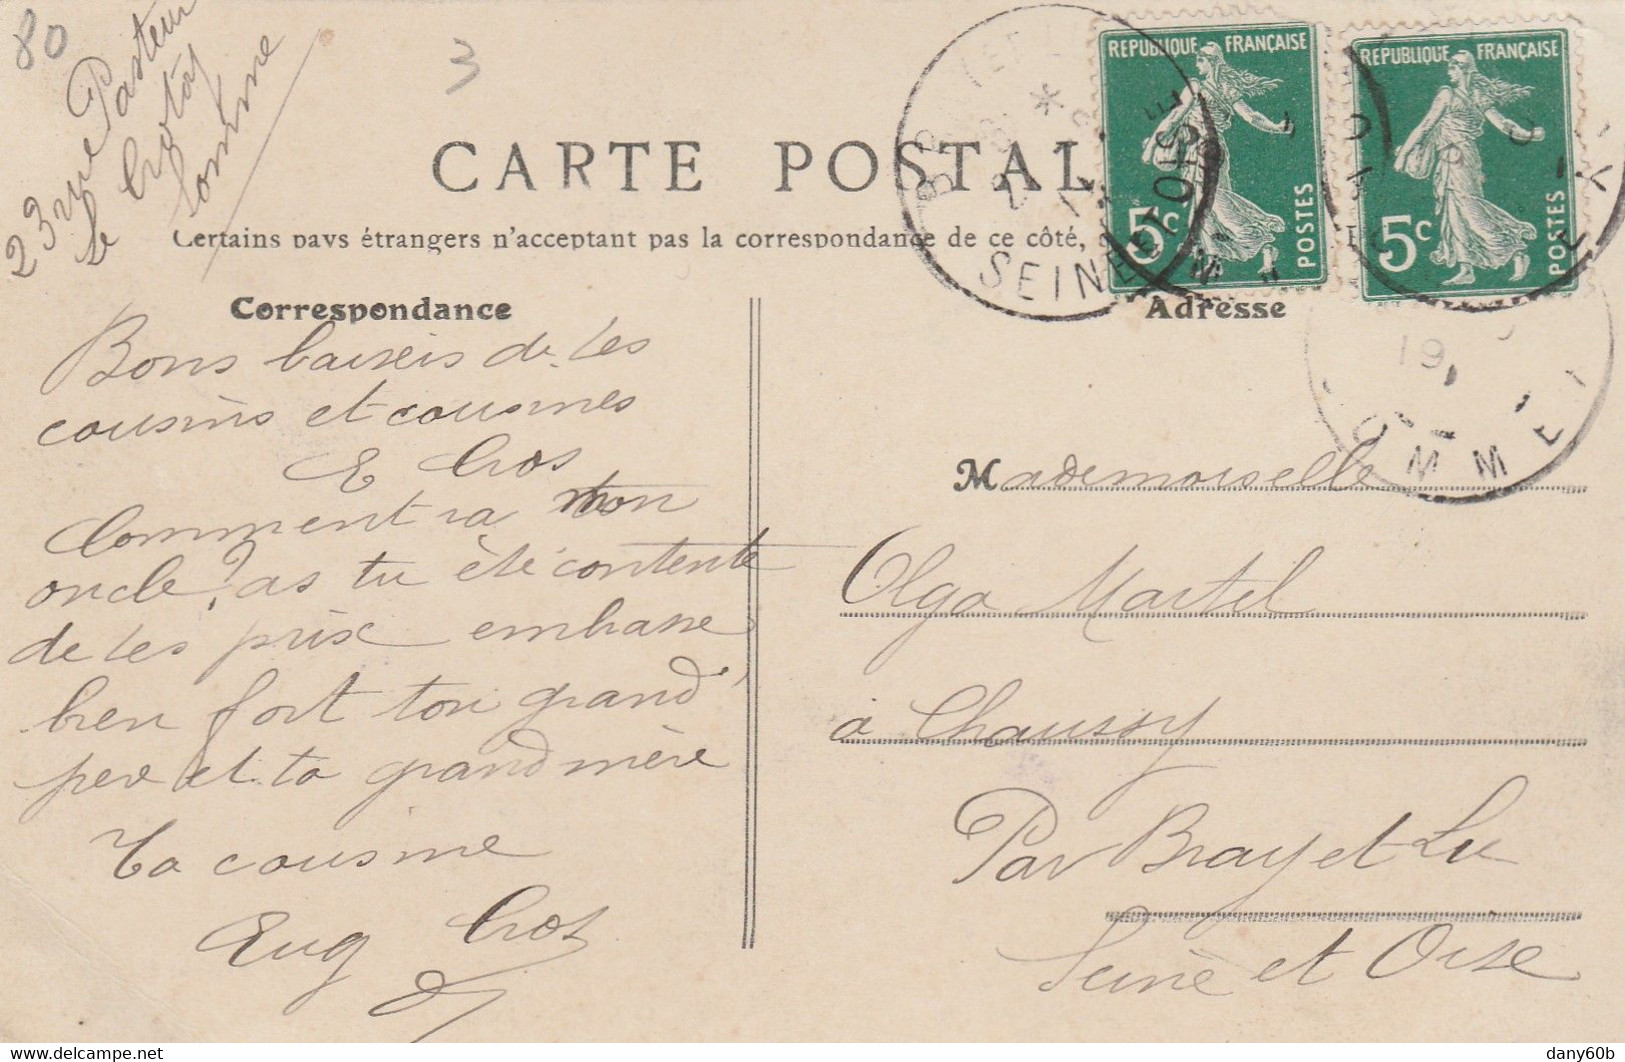 80
3
23 rue Pasteur
le Crotoy
Somme
CARTE POSTAL
Certains pays étrangers n'acceptent pas la correspondance de ce côté,
REPUBLIQUE FRANÇAISE
5c
POSTES
REPUBLIQUE FRANÇAISE
5c
POSTES
SEINE ET OISE
19
Correspondance
Adresse
Bons baisers de tes
cousins et cousines
E Cros
Comment va mon
oncle? as tu été contente
de tes prix embrasse
bien fort ton grand
père et ta grand mère
Ta cousine
Eug Cros
Mademoiselle
Olga Martel
à Chaussy
Par Bray et Lu
Seine et Oise
dany60b